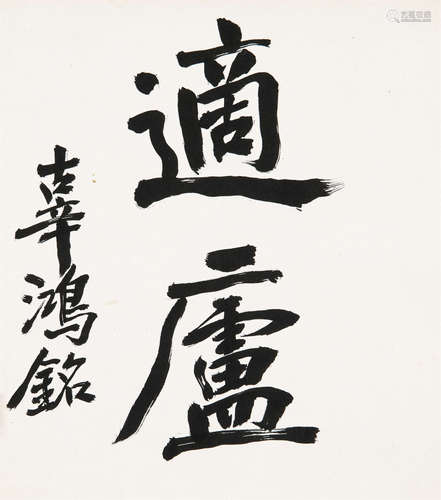 適廬
辜鴻銘